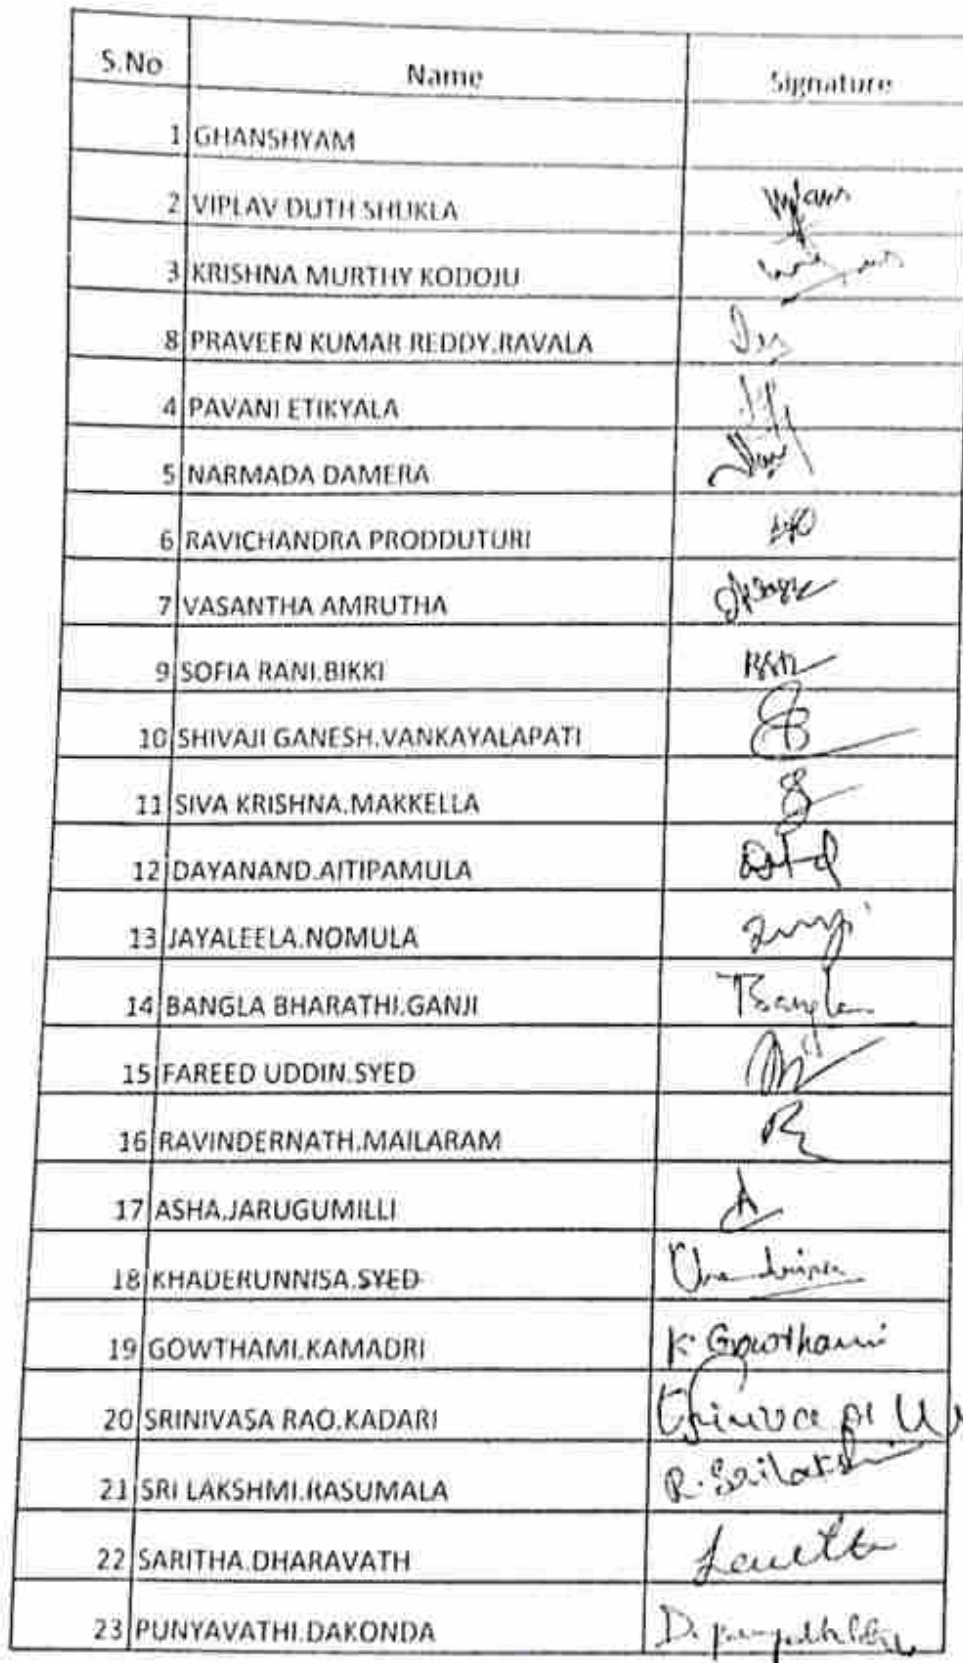 S.No Name Signature
1 GHANSHYAM
2 VIPLAV DUTH SHUKLA
3 KRISHNA MURTHY KODOJU
8 PRAVEEN KUMAR REDDY.RAVALA
4 PAVANI ETIKYALA
5 NARMADA DAMERA
6 RAVICHANDRA PRODDUTURI
7 VASANTHA AMRUTHA
9 SOFIA RANI.BIKKI
10 SHIVAJI GANESH.VANKAYALAPATI
11 SIVA KRISHNA.MAKKELLA
12 DAYANAND.AITIPAMULA
13 JAYALEELA.NOMULA
14 BANGLA BHARATHI.GANJI Bangla
15 FAREED UDDIN.SYED
16 RAVINDERNATH.MAILARAM
17 ASHA.JARUGUMILLI
18 KHADERUNNISA.SYED
19 GOWTHAMI.KAMADRI K. Gowthami
20 SRINIVASA RAO.KADARI
21 SRI LAKSHMI.RASUMALA R. Srilakshmi
22 SARITHA.DHARAVATH
23 PUNYAVATHI.DAKONDA